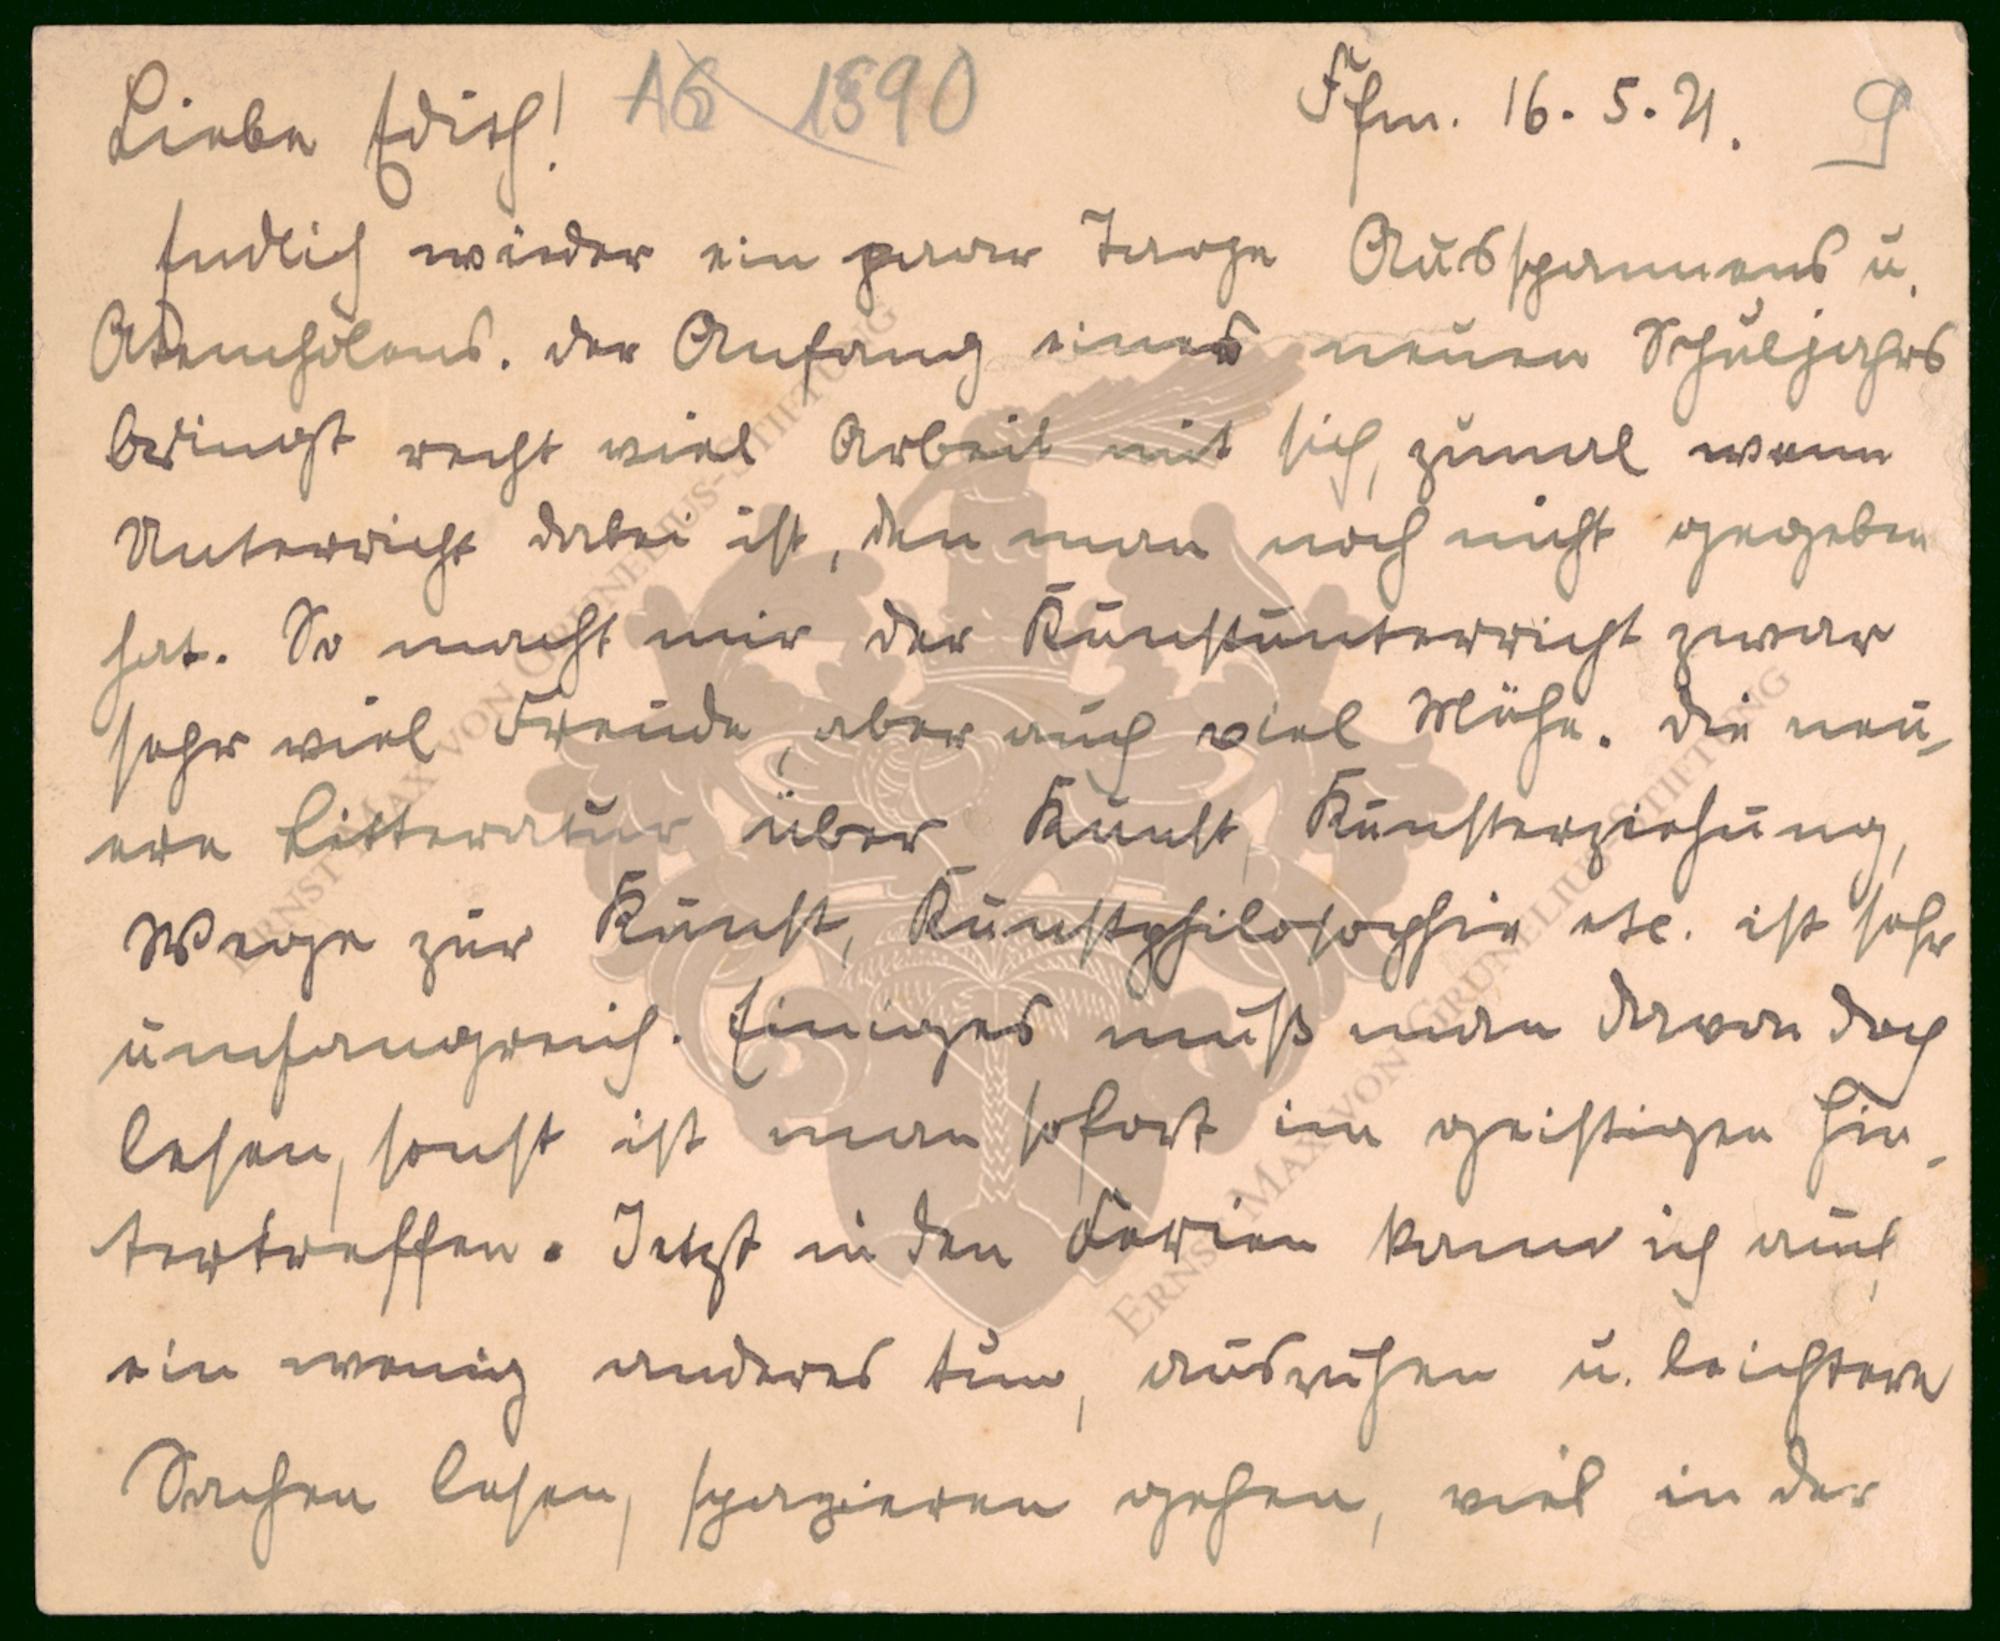 Liebe Edith! A6 1890 Ffm. 16. 5. 21. 9
Endlich wieder ein paar Tage Ausspannens u.
Atemholens. der Anfang eines neuen Schuljahrs
bringt recht viel Arbeit mit sich, zumal wenn
Unterricht dabei ist, den man noch nicht gegeben
hat. So macht mir der Kunstunterricht zwar
sehr viel Freude, aber auch viel Mühe. die neu-
ere Litteratur über Kunst, Kunsterziehung,
Wege zur Kunst, Kunstphilosophie etc. ist sehr
umfangreich. Einiges muß man davon doch
lesen, sonst ist man sofort im geistigen Hin-
tertreffen. Jetzt in den Ferien kann ich auch
ein wenig anderes tun, ausruhen u. leichtere
Sachen lesen, spazieren gehen, viel in der
ERNST MAX VON GRUNELIUS-STIFTUNG
ERNST MAX VON GRUNELIUS-STIFTUNG